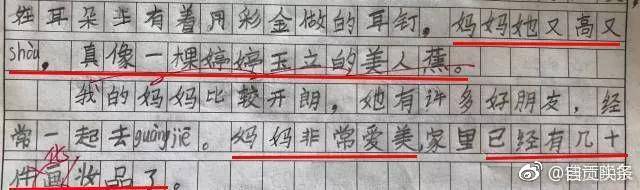 耳朵上有着用彩金做的耳钉。妈妈她又高又
shòu，真像一棵婷婷玉立的美人蕉。
我的妈妈比较开朗，她有许多好朋友，经
常一起去guàngjiē。妈妈非常爱美，家里已经有几十
化
件画妆品了。
@自贡快条